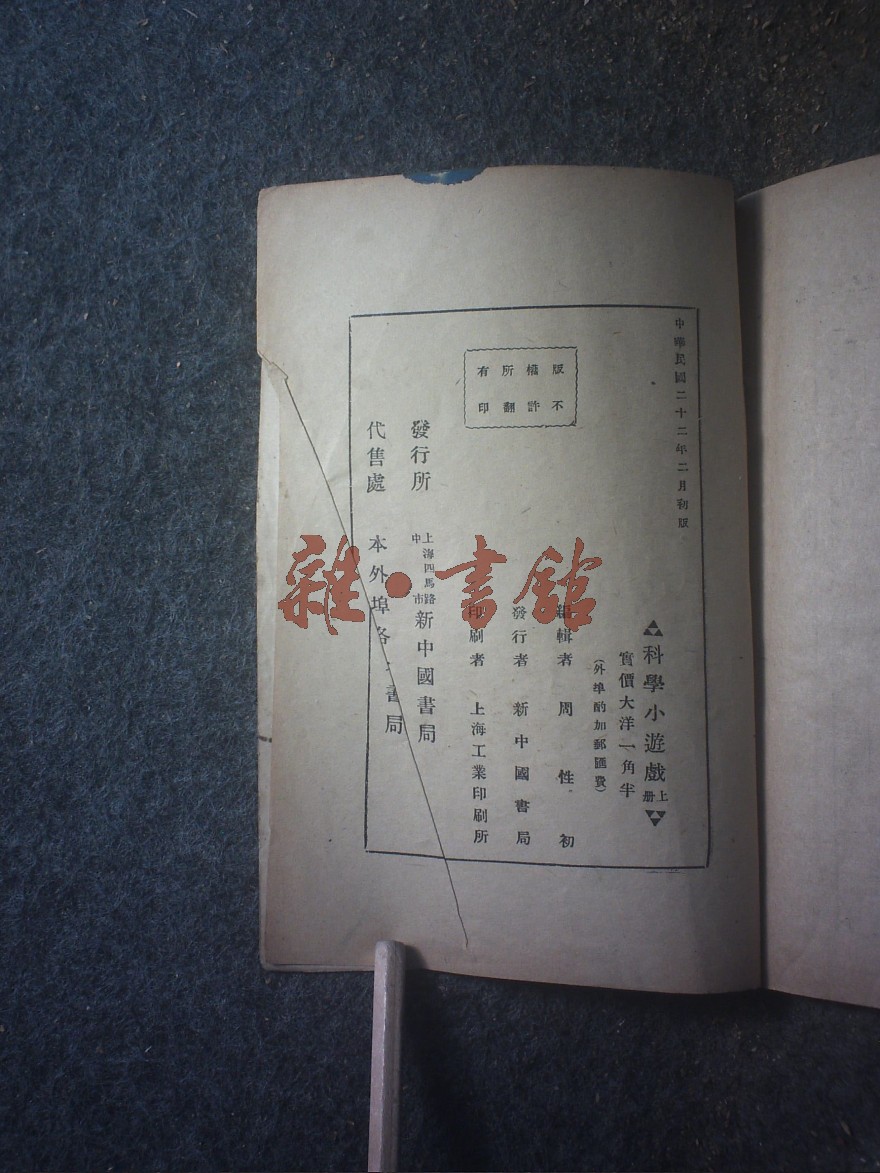 中華民國二十二年二月初版
科學小遊戲上册
實價大洋一角半
(外埠酌加郵匯費)
版權所有
不許翻印
編輯者 周性初
發行者 新中國書局
印刷者 上海工業印刷所
發行所 上海四馬路中市 新中國書局
代售處 本外埠各 書局
雜·書館